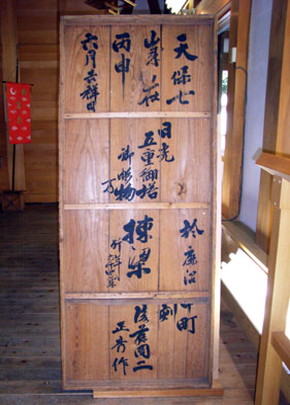 天保七
丙申
六月吉祥日
日光
五重御塔
御彫物
方
於鹿沼
棟梁
町
後藤周二
正秀作